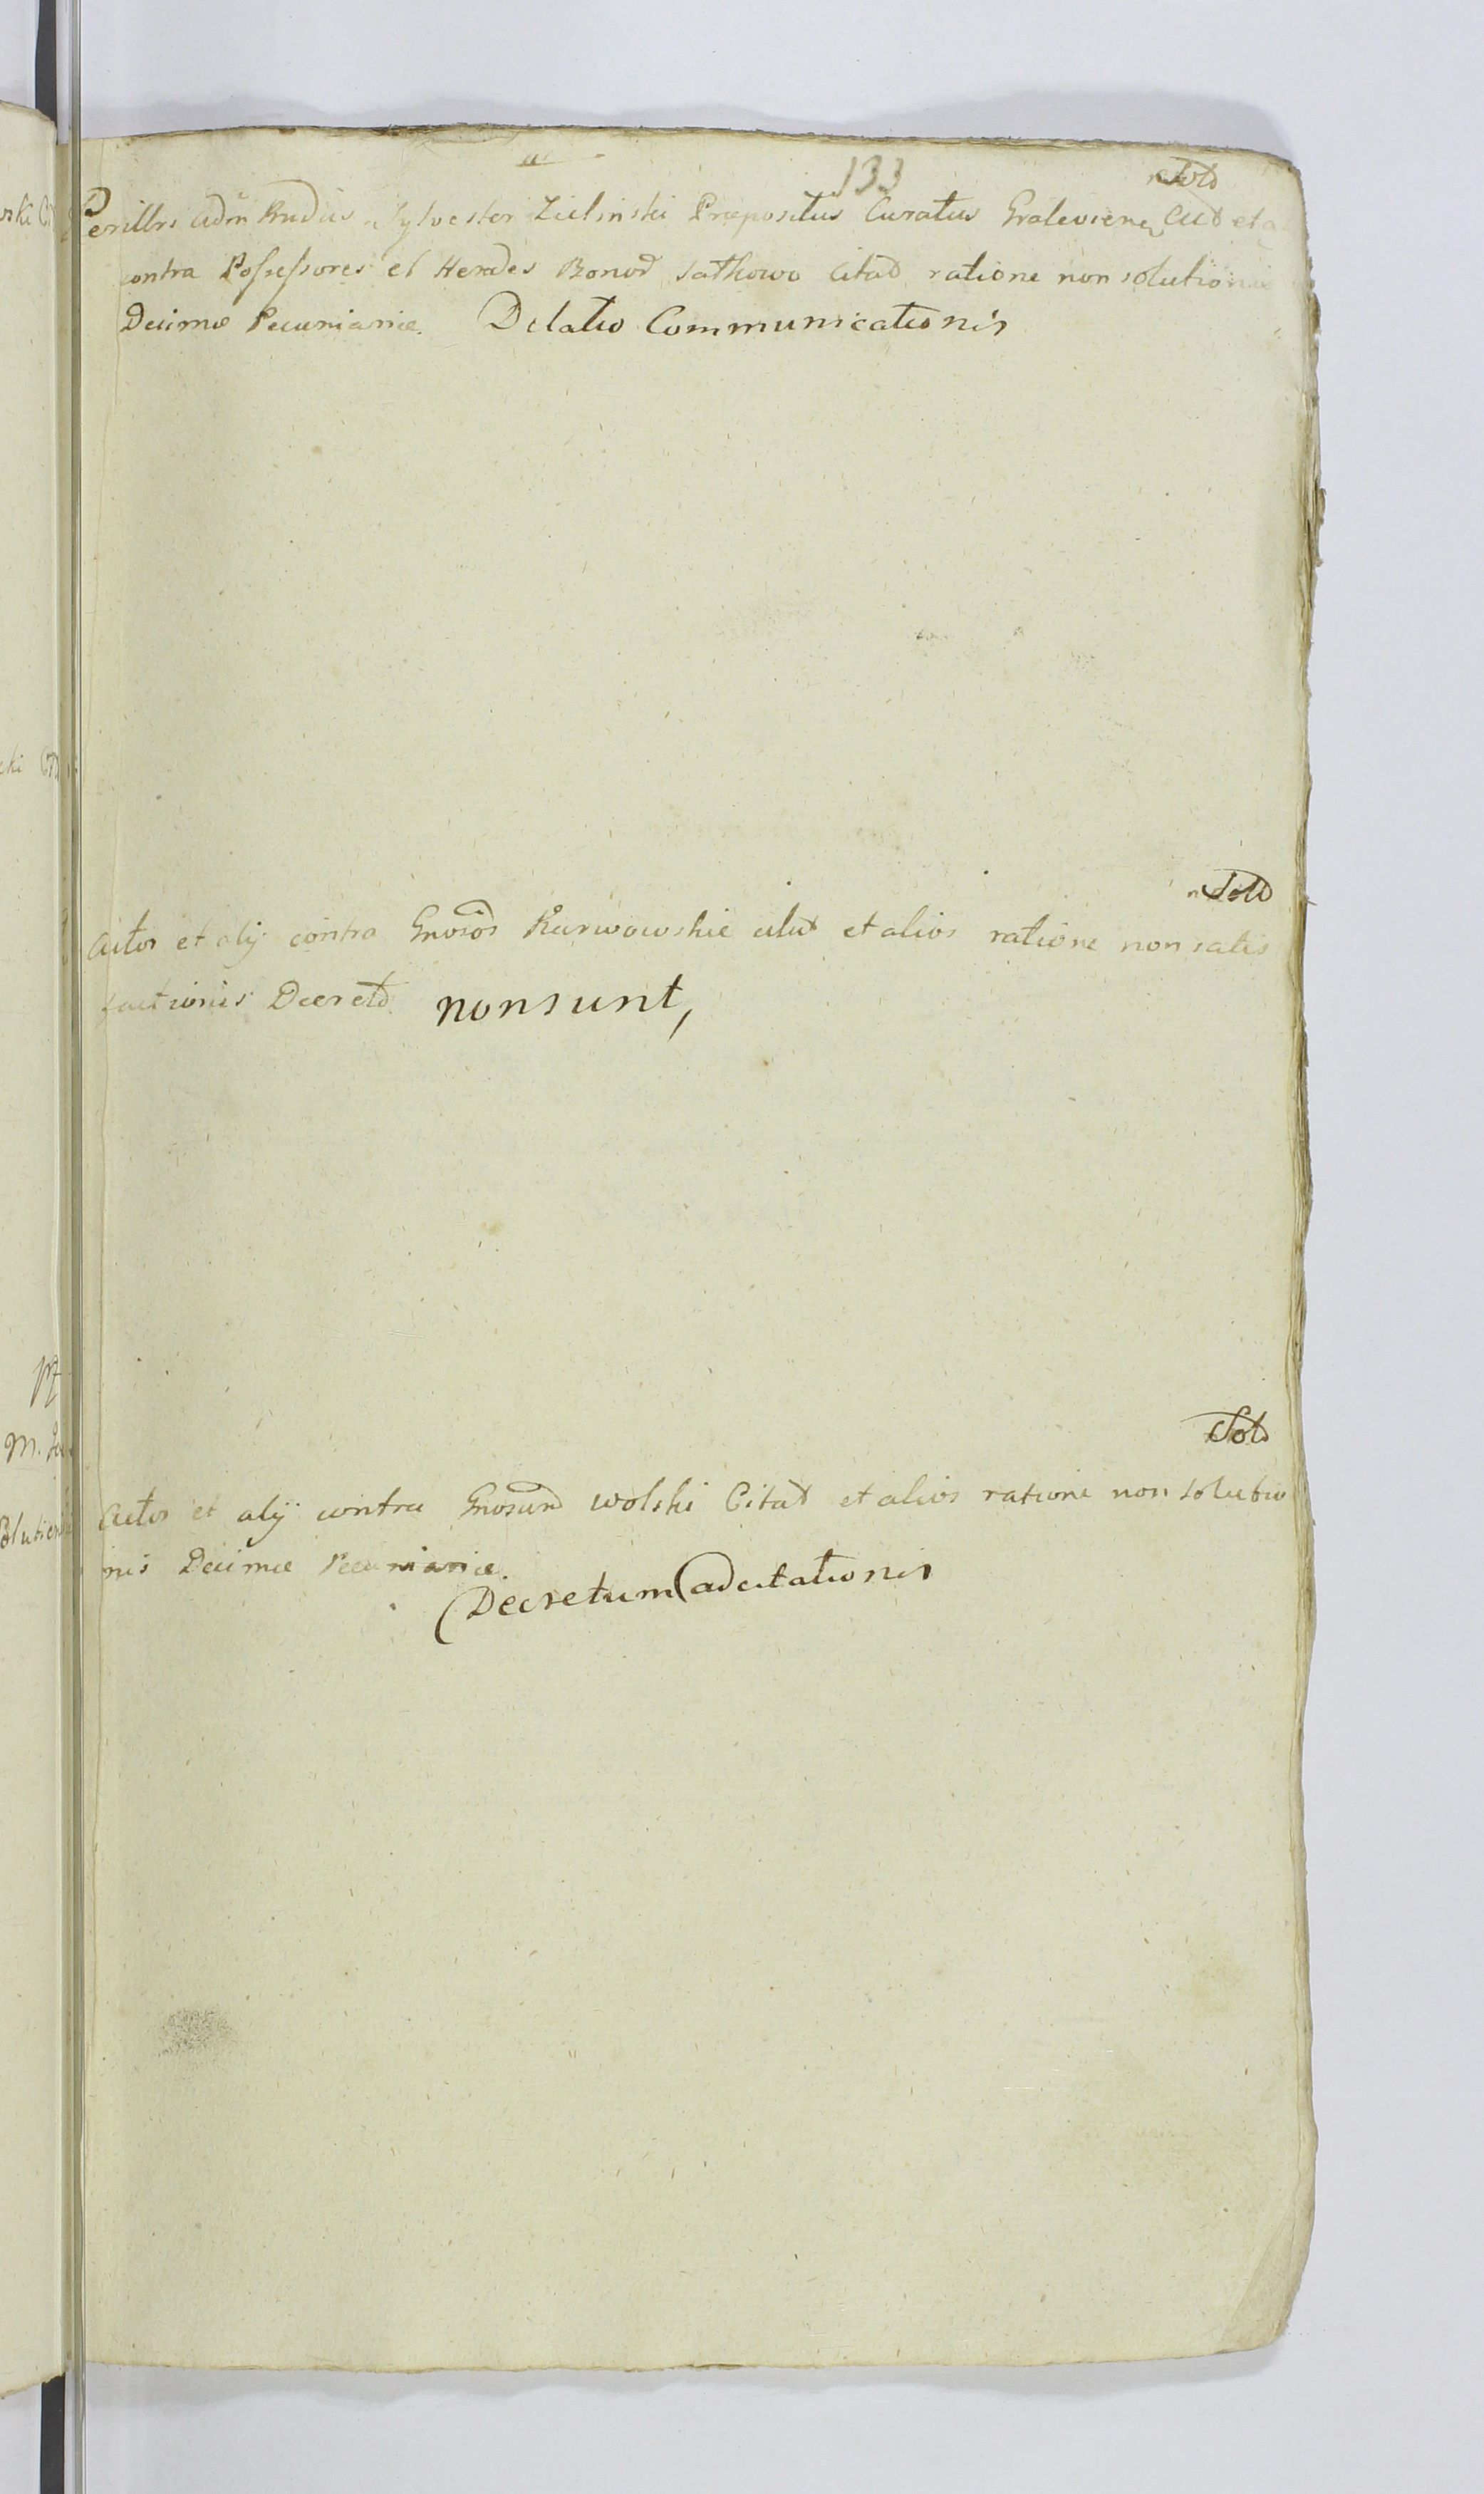 133
Sold
Perillrs Adm Rndus Sylvester Zielinski Præpositus Curatus Graleviens Act et
contra Possessores et Heredes Bonor Jatkowo Citat ratione non solutionis
Decimæ Pecuniariæ. Dilatio Communicationis
Sold
Actor et alij contra Gnosos Karwowskie citat et alios ratione non satis
factionis Decreto non sunt,
Sold
Actor et alij contra Gnosum Wolski Citat et alios ratione non solutio
nis Decimæ Pecuniariæ.
Decretum adcitationis